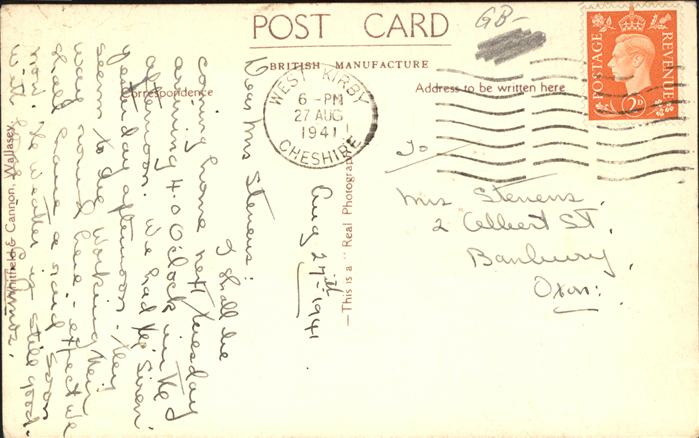 POST CARD
GB-
BRITISH MANUFACTURE
Correspondence
Address to be written here
POSTAGE
REVENUE
2D
WEST KIRBY
6 - PM
27 AUG
1941
CHESHIRE
To
Mrs Stevens,
2 Calbert St,
Banbury,
Oxon:
—This is a "Real Photograph
Whitfield & Cannon, Wallasey.
Aug 27th - 1941
Dear Mrs Stevens:
I shall be
coming home next Tuesday
arriving 4.0 O'clock in the
afternoon. We had the Siren
yesterday afternoon - they
seem to be working their
way round here - expect we
shall have a raid soon
now. The weather is still good.
with